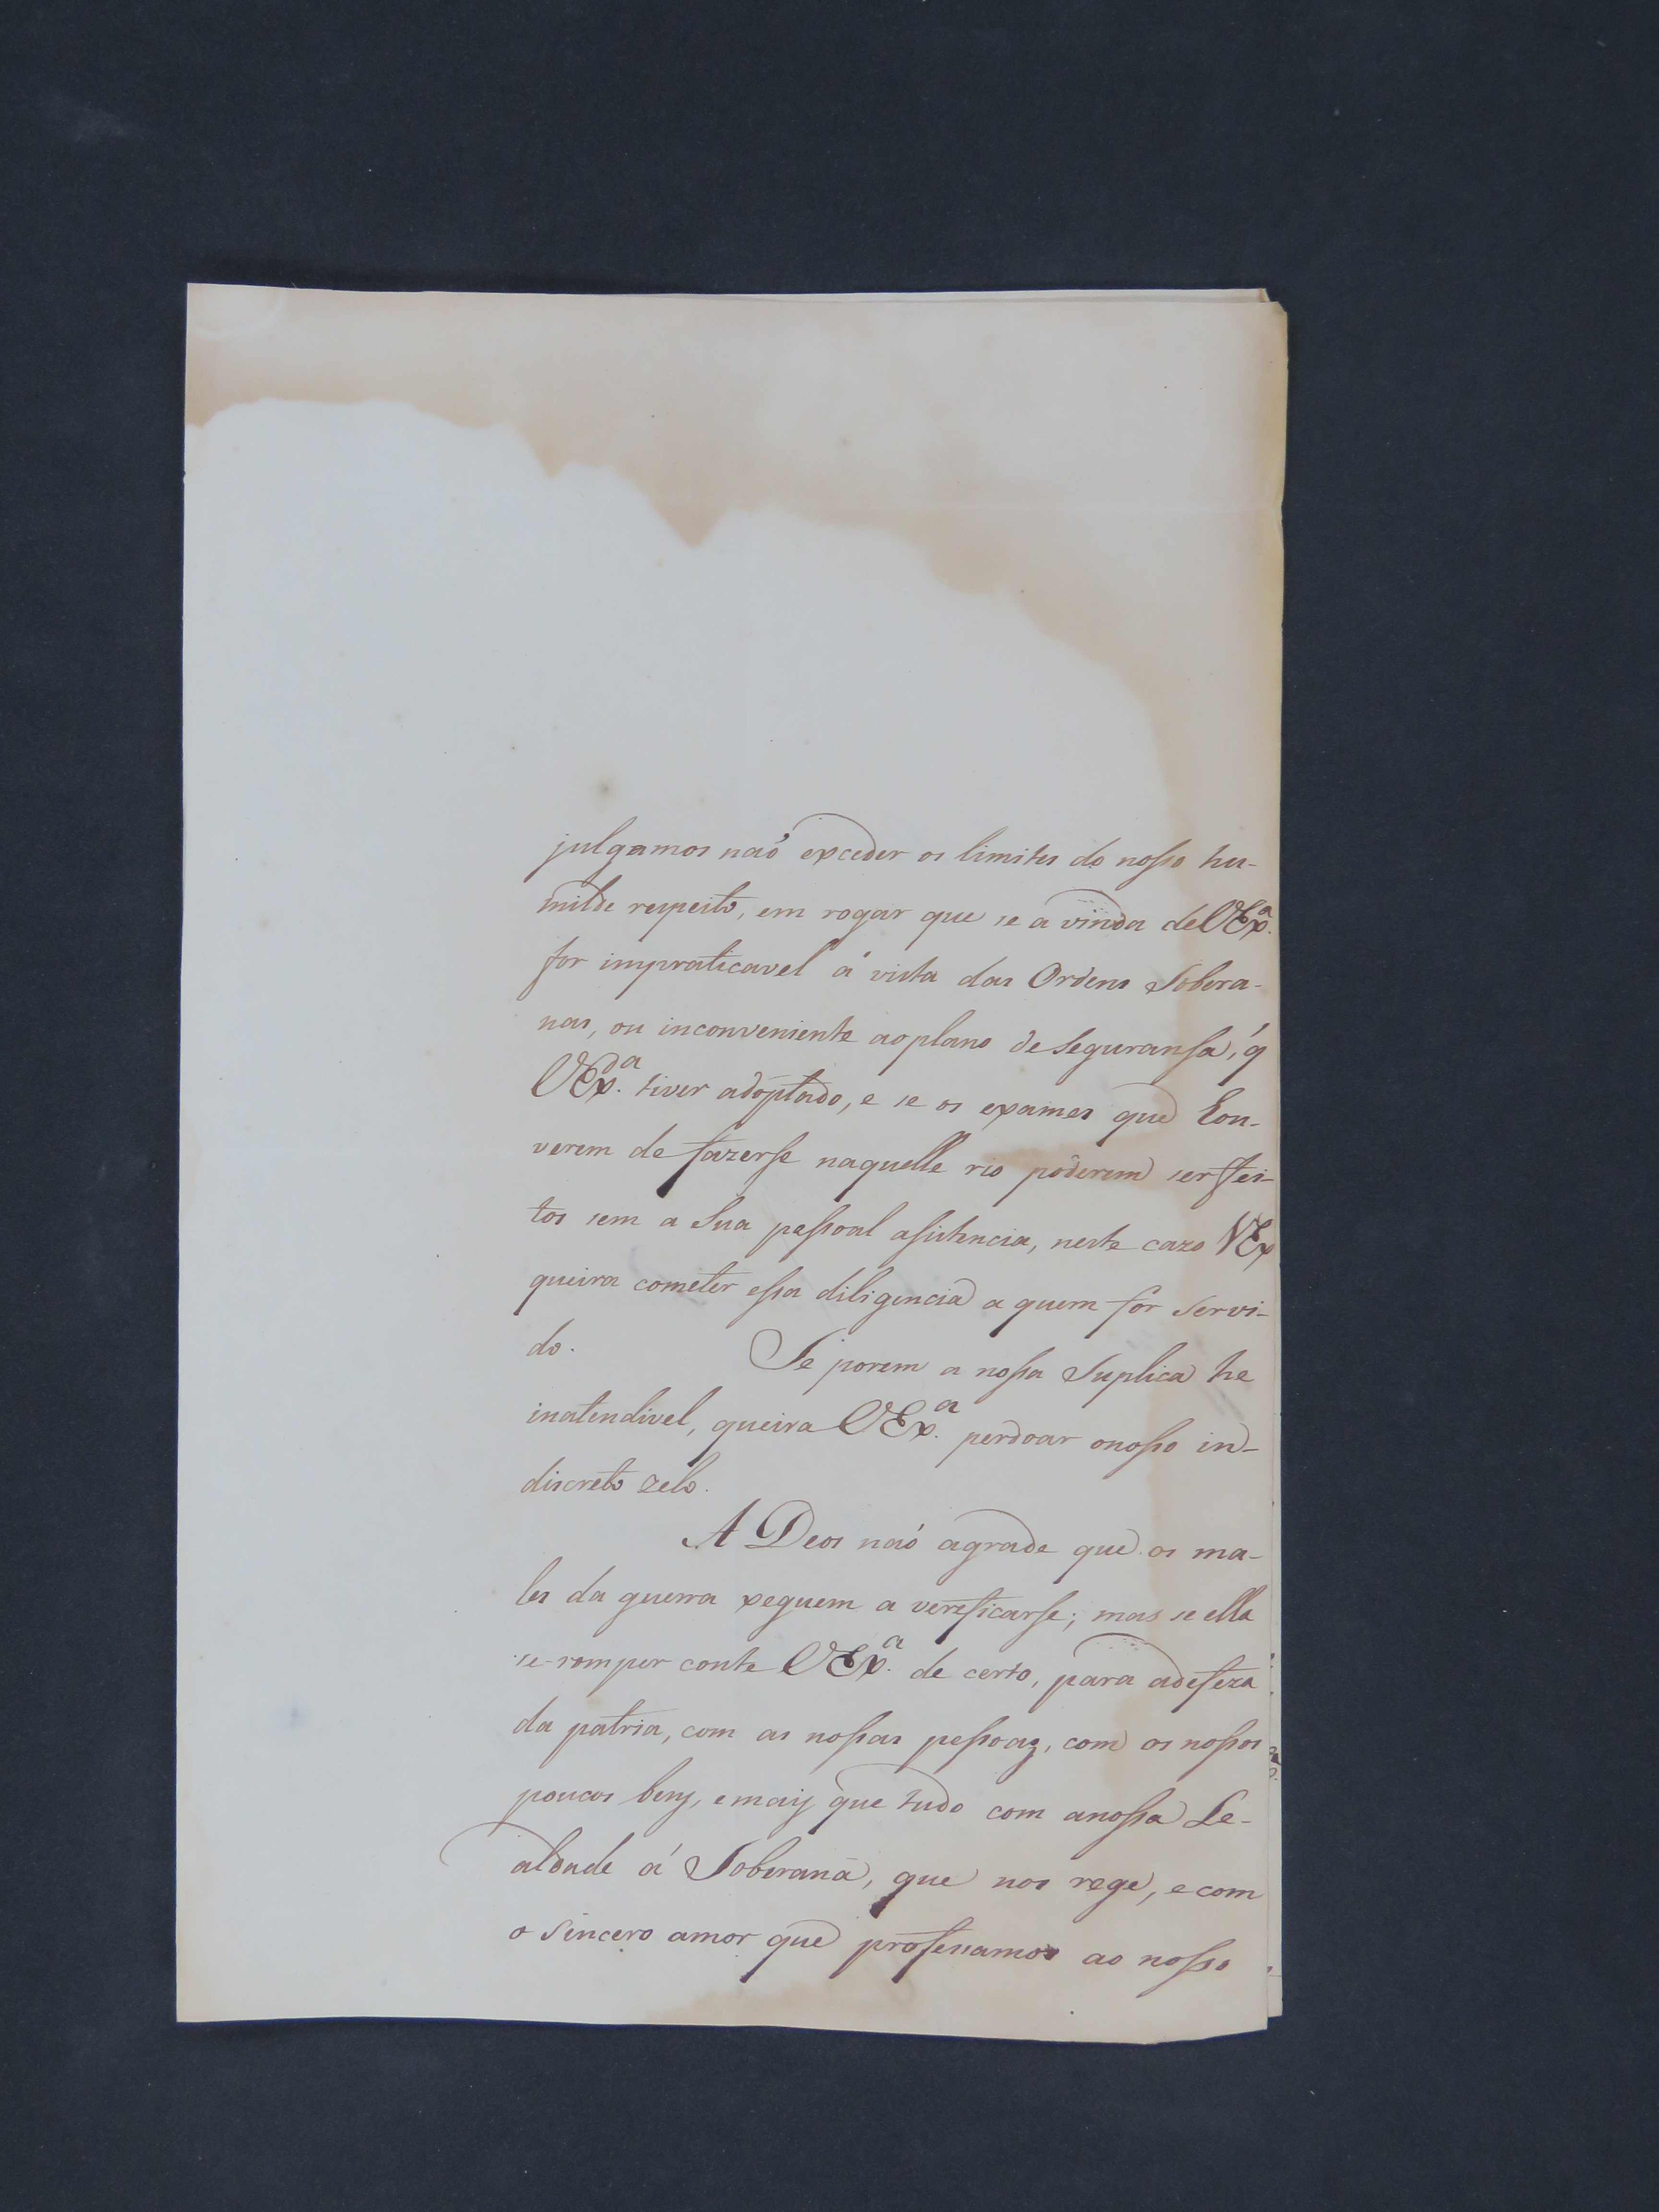 julgamos naõ exceder os limites do nosso hu-
milde respeito, em rogar que se a vinda de VExª.
for impraticavel á vista das Ordens Sobera-
nas, ou inconveniente ao plano de Seguransa, q̃
VExª. tiver adoptado, e se os exames que hou-
verem de fazerse naquelle rio poderem ser fei-
tos sem a Sua pessoal asistencia, neste cazo VEx
queira cometer essa diligencia a quem for servi-
do. Se porem a nossa Suplica he
inatendivel, queira VExª. perdoar o nosso in-
discreto zelo.
A Deos naõ agrade que os ma-
les da guerra xeguem a verificarse; mas se ella
se romper conte VExª. de certo, para a defeza
da patria, com as nossas pessoas, com os nossos
poucos bens, e mais que tudo com a nossa Le-
aldade á Soberana, que nos rege, e com
o Sincero amor que profesamos ao nosso